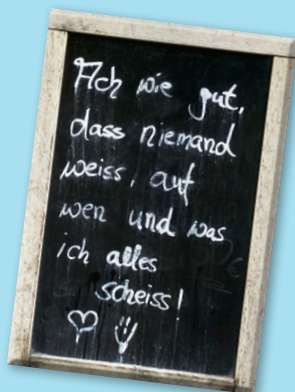 Ach wie gut,
dass niemand
weiss, auf
wen und was
ich alles
scheiss!